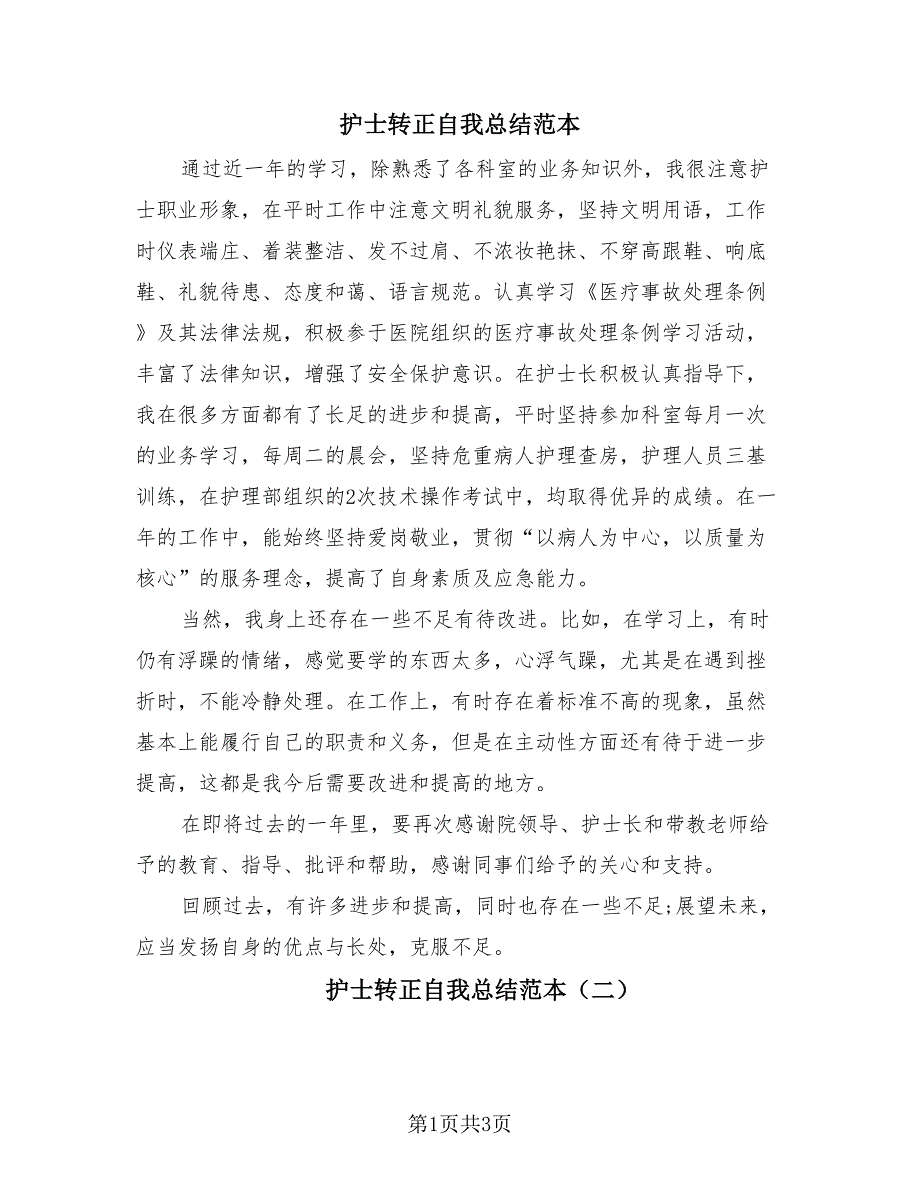 护士转正自我总结范本
通过近一年的学习，除熟悉了各科室的业务知识外，我很注意护
士职业形象，在平时工作中注意文明礼貌服务，坚持文明用语，工作
时仪表端庄、着装整洁、发不过肩、不浓妆艳抹、不穿高跟鞋、响底
鞋、礼貌待患、态度和蔼、语言规范。认真学习《医疗事故处理条例
》及其法律法规，积极参于医院组织的医疗事故处理条例学习活动，
丰富了法律知识，增强了安全保护意识。在护士长积极认真指导下，
我在很多方面都有了长足的进步和提高，平时坚持参加科室每月一次
的业务学习，每周二的晨会，坚持危重病人护理查房，护理人员三基
训练，在护理部组织的2次技术操作考试中，均取得优异的成绩。在一
年的工作中，能始终坚持爱岗敬业，贯彻“以病人为中心，以质量为
核心”的服务理念，提高了自身素质及应急能力。
当然，我身上还存在一些不足有待改进。比如，在学习上，有时
仍有浮躁的情绪，感觉要学的东西太多，心浮气躁，尤其是在遇到挫
折时，不能冷静处理。在工作上，有时存在着标准不高的现象，虽然
基本上能履行自己的职责和义务，但是在主动性方面还有待于进一步
提高，这都是我今后需要改进和提高的地方。
在即将过去的一年里，要再次感谢院领导、护士长和带教老师给
予的教育、指导、批评和帮助，感谢同事们给予的关心和支持。
回顾过去，有许多进步和提高，同时也存在一些不足;展望未来，
应当发扬自身的优点与长处，克服不足。
护士转正自我总结范本（二）
第1页共3页